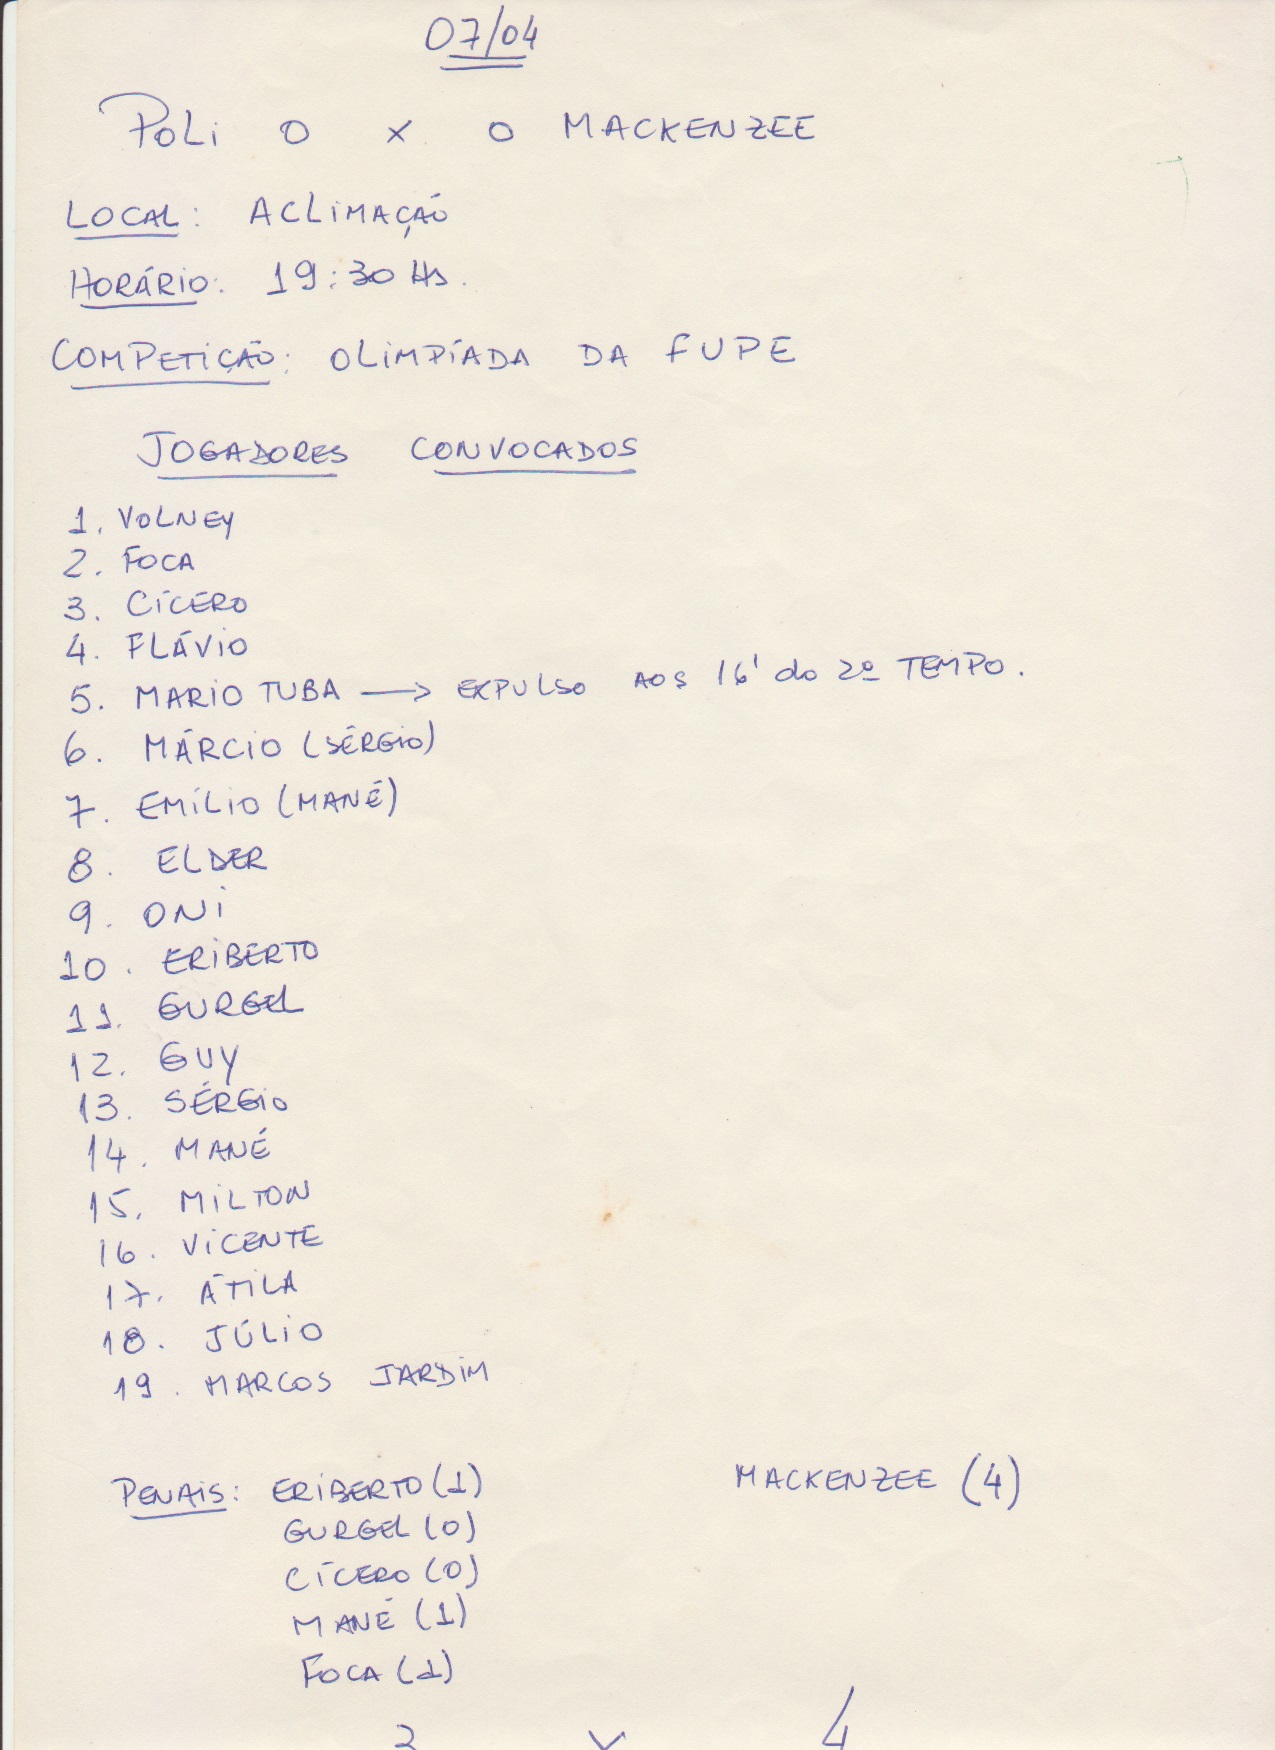 07/04
POLI 0 X 0 MACKENZEE
LOCAL: ACLIMAÇÃO
HORÁRIO: 19:30 Hs.
COMPETIÇÃO: OLIMPÍADA DA FUPE
JOGADORES CONVOCADOS
1. VOLNEY
2. FOCA
3. CÍCERO
4. FLÁVIO
5. MARIO TUBA → EXPULSO AOS 16' do 2º TEMPO.
6. MÁRCIO (SÉRGIO)
7. EMÍLIO (MANÉ)
8. ELDER
9. ONI
10. ERIBERTO
11. GURGEL
12. GUY
13. SÉRGIO
14. MANÉ
15. MILTON
16. VICENTE
17. ÁTILA
18. JÚLIO
19. MARCOS JARDIM
PENAIS: ERIBERTO (1) MACKENZEE (4)
GURGEL (0)
CÍCERO (0)
MANÉ (1)
FOCA (1)
3 X 4